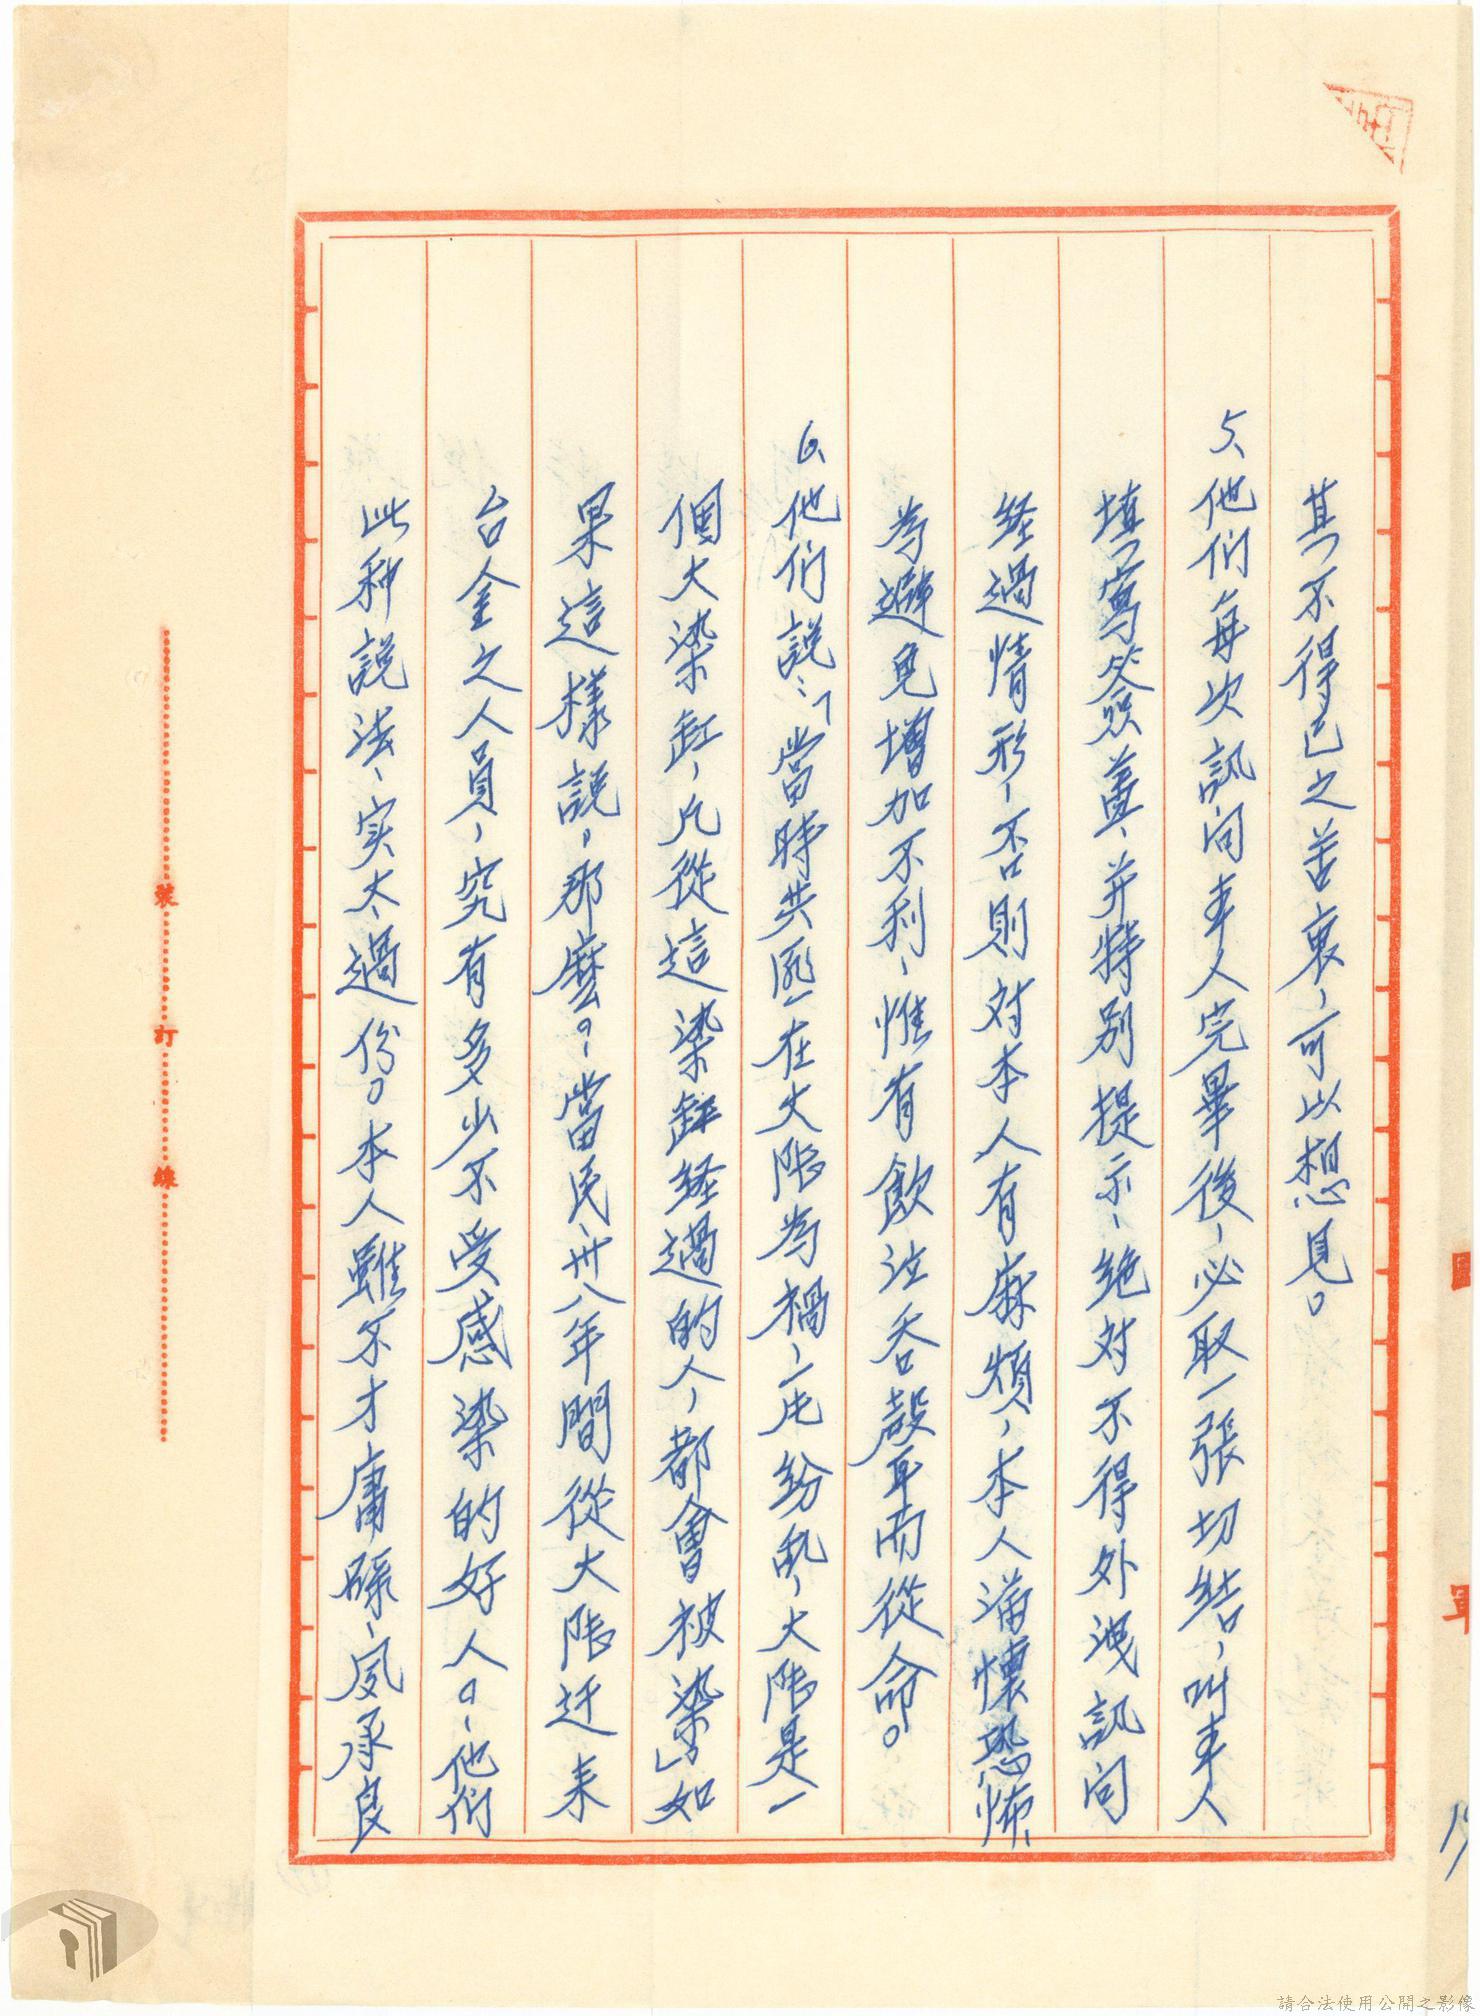 其不得已之苦衷，可以想見。
5、他们每次訊问本人完畢後，必取一張切結，叫本人
填寫簽蓋，并特别提示，絶对不得外洩訊问
経過情形，否則对本人有麻煩，本人滿懷恐怖，
為避免增加不利，惟有飲泣吞聲耳而從命。
6、他们說：「當時共匪在大陆為禍，一片紛乱，大陆是一
個大染缸，凡從這染缸経過的人，都會被染」如
果這樣說，那麼。當民卅八年間從大陆迁来
台金之人員，究有多少不受感染的好人。他们
此种說法，实太過份。本人雖不才庸碌，夙承良
裝 訂 線
國 軍
請合法使用公開之影像